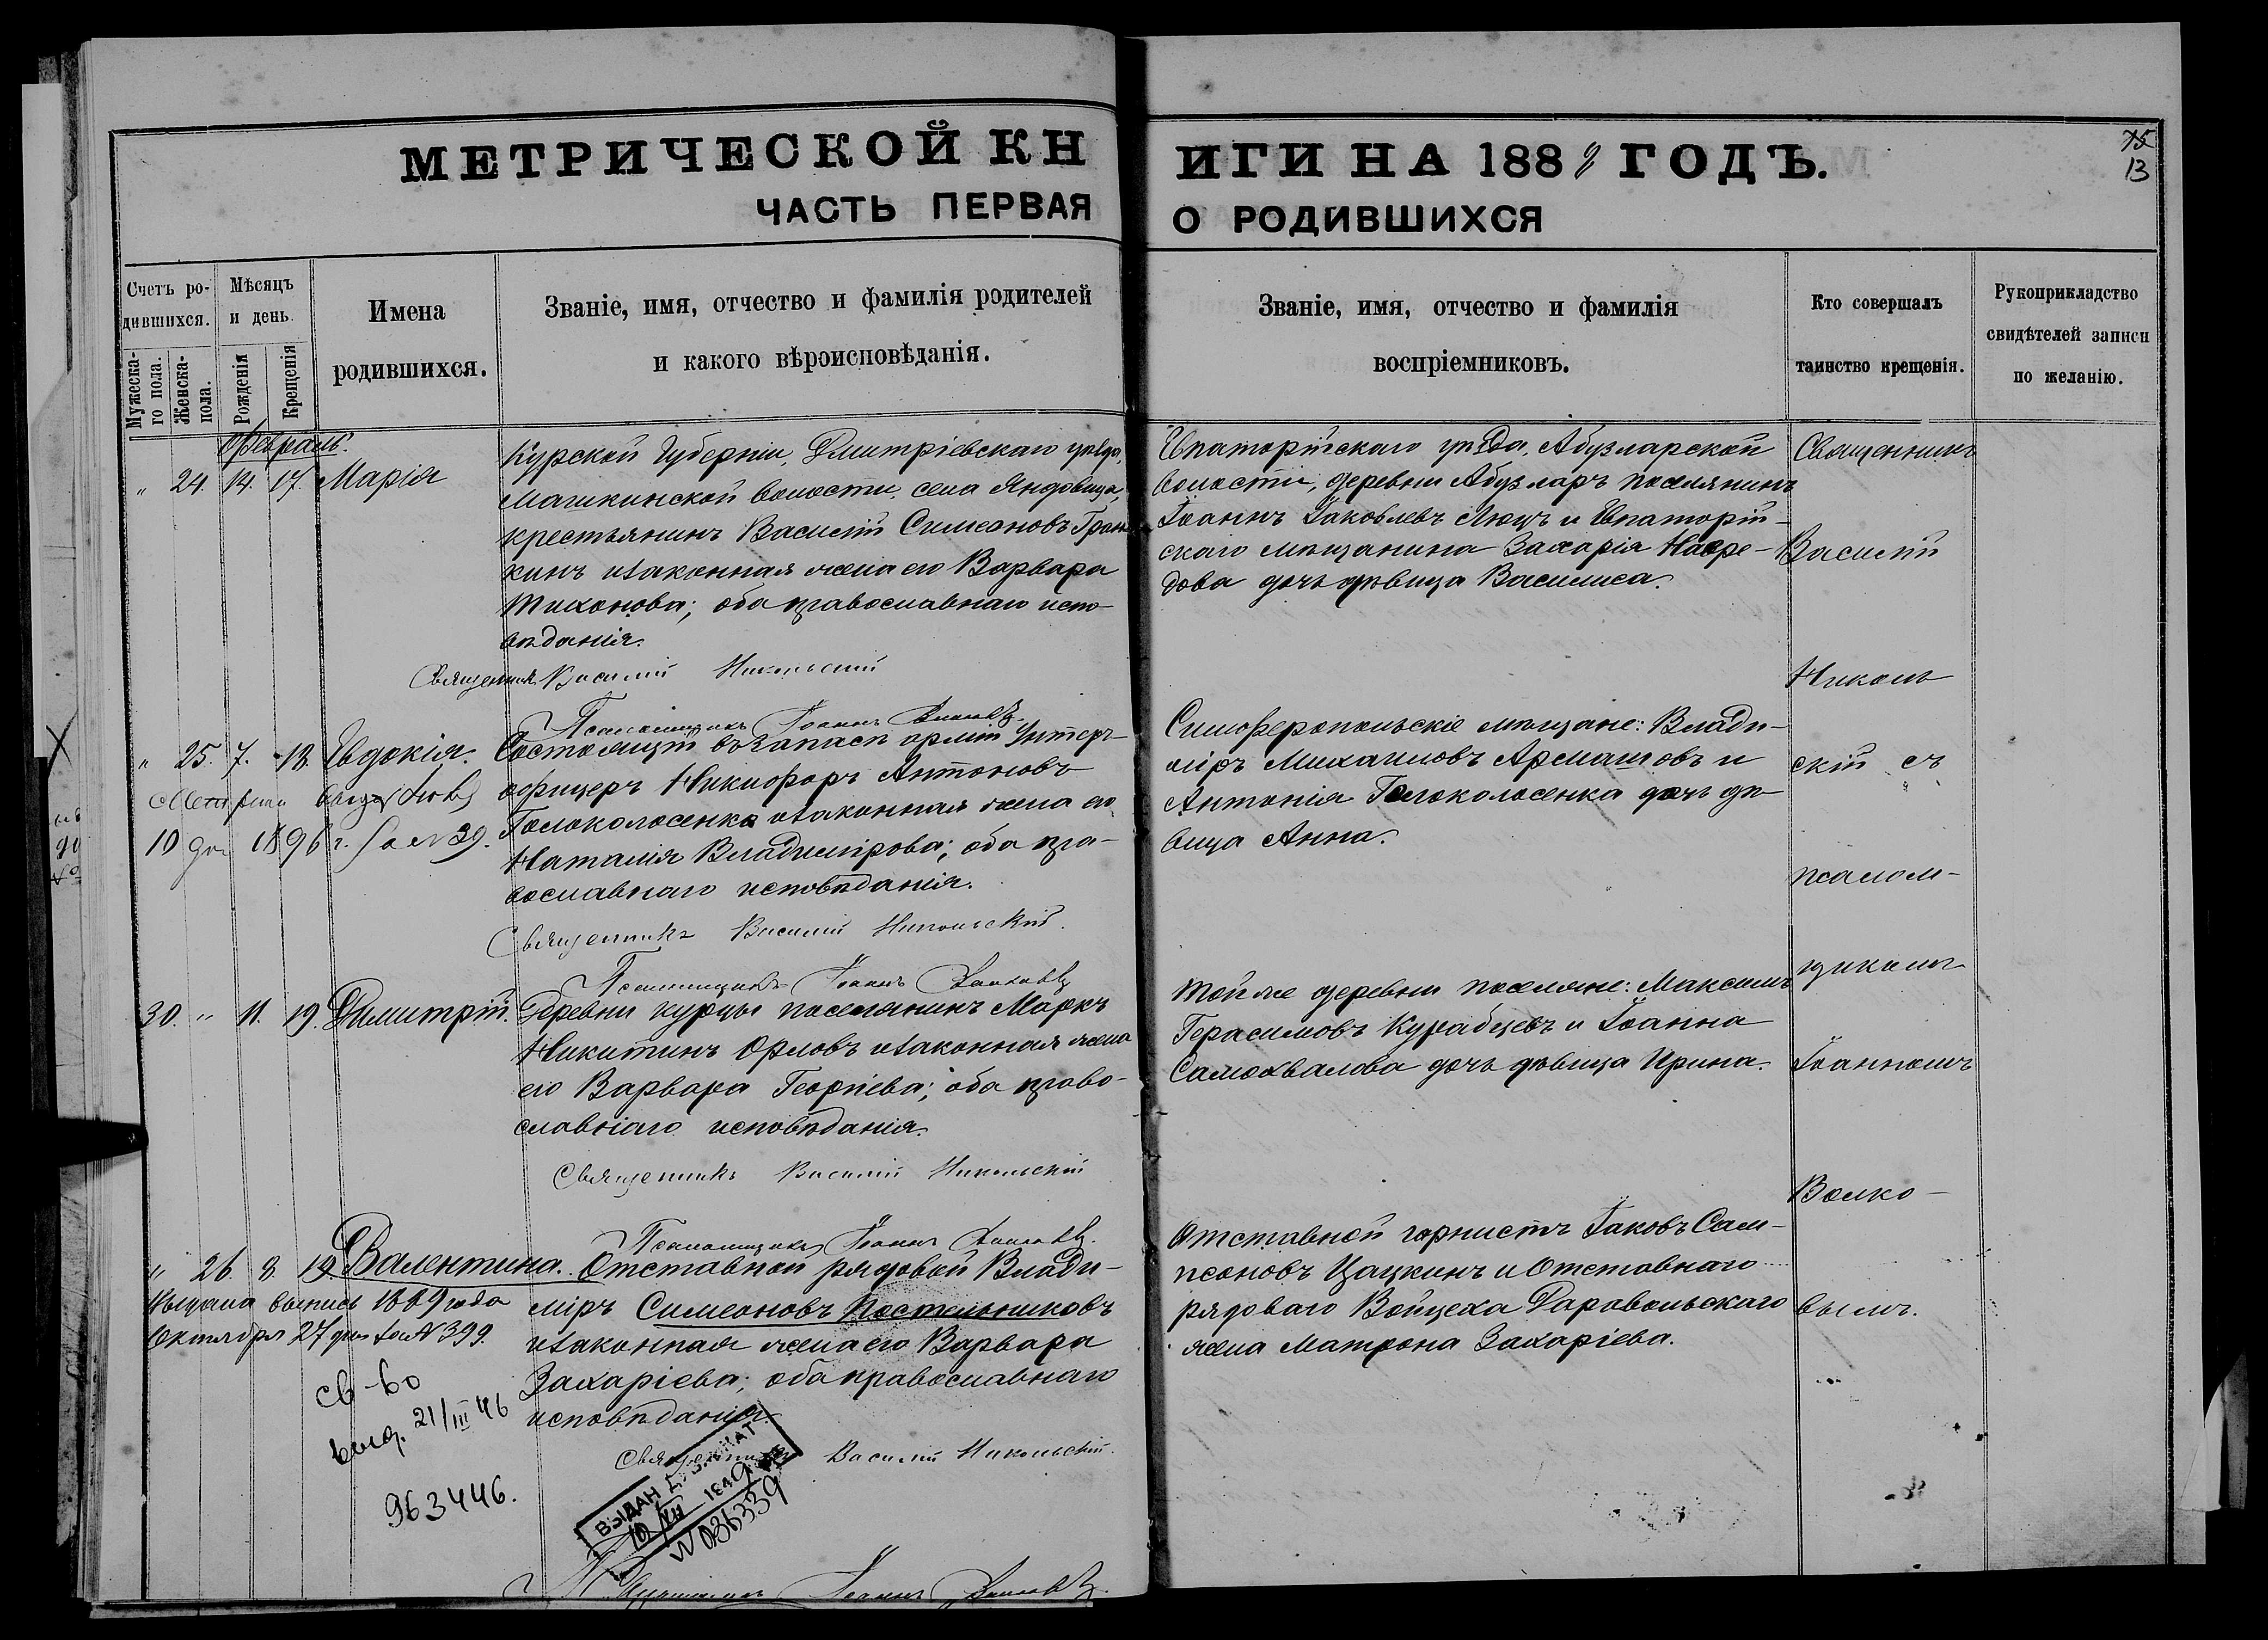 МЕТРИЧЕСКОЙ КН
ЧАСТЬ ПЕРВАЯ
Счетъ ро-
дившихся.
Мужеска-
го пола.
Женска-
пола.
Мѣсяцъ
и день.
Рожденія
Крещенія
Имена
родившихся.
Званіе, имя, отчество и фамилія родителей
и какого вѣроисповѣданія.
Февраль.
" 24. 14. 17. Марія
Курской Губерніи, Дмитріевскаго уѣзда,
Машкинской волости, села Яндовища,
крестьянинъ Василій Симеоновъ
кинъ и законная жена его Варвара
Тихонова; оба православнаго испо-
вѣданія.
Священникъ Василій Никольскій
Псаломщикъ Іоаннъ
" 25. 7. 18. Евдокія.
Метрика
10 1896 г. за № 39.
Состоящій въ запасѣ арміи Унтеръ-
офицеръ Никифоръ Антоновъ
Голоколосенко и законная жена его
Наталія Владимірова; оба пра-
вославнаго исповѣданія.
Священникъ Василій Никольскій.
Псаломщикъ Іоаннъ
30. " 11. 19. Димитрій.
Деревни Курцы поселянинъ Маркъ
Никитинъ Орловъ и законная жена
его Варвара Георгіева; оба право-
славнаго исповѣданія.
Священникъ Василій Никольскій
Псаломщикъ Іоаннъ
" 26. 8. 19 Валентина.
Выдана выпись 1889 года
Октября 27 дня за № 399.
Отставной рядовой Влади-
міръ Симеоновъ Постельниковъ
и законная жена его Варвара
Захаріева; оба православнаго
исповѣданія.
Священникъ Василій Никольскій.
св-во
выд. 21/III 46
963446.
ВЫДАН
10/VII 1949
№ 036339
Псаломщикъ Іоаннъ
ИГИ НА 1889 ГОДЪ.
О РОДИВШИХСЯ
75
13
Званіе, имя, отчество и фамилія
воспріемниковъ.
Кто совершалъ
таинство крещенія.
Рукоприкладство
свидѣтелей записи
по желанію.
Евпаторійскаго уѣзда, Абузларской
волости, деревни Абузларъ поселянинъ
Іоаннъ Іаковлевъ Люцъ и Евпаторій-
скаго мѣщанина Захарія Насре-
дова дочь дѣвица Василиса.
Симферопольскіе мѣщане: Влади-
міръ Михаиловъ Армашовъ и
Антонія Голоколосенка дочь дѣ-
вица Анна.
Той же деревни поселяне: Максимъ
Герасимовъ Курабцевъ и Іоанна
Самохвалова дочь дѣвица Ирина.
Отставной горнистъ Іаковъ Сам-
псоновъ Цацкинъ и Отставнаго
рядоваго Войцеха Доровольскаго
жена Матрона Захаріева.
Священникъ
Василій
Николь
скій съ
псалом-
щикомъ
Іоанномъ
Волко-
вымъ.